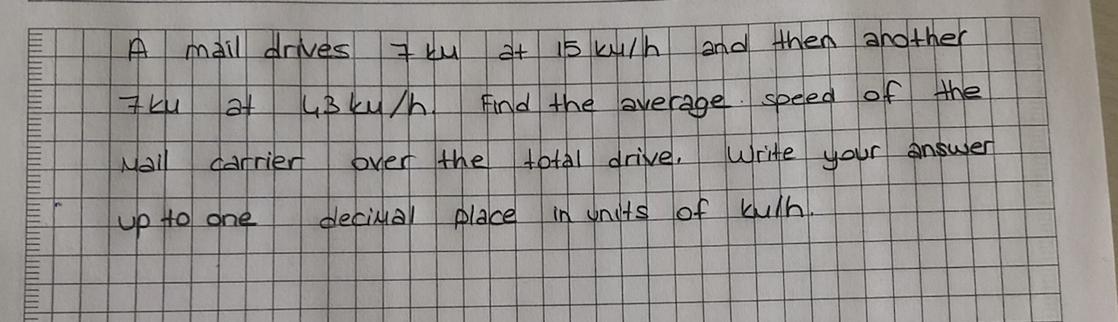 A mail drives 7 km at 15 km/h and then another
7 km at 43 km/h. Find the average speed of the
Mail carrier over the total drive. Write your answer
up to one decimal place in units of km/h.